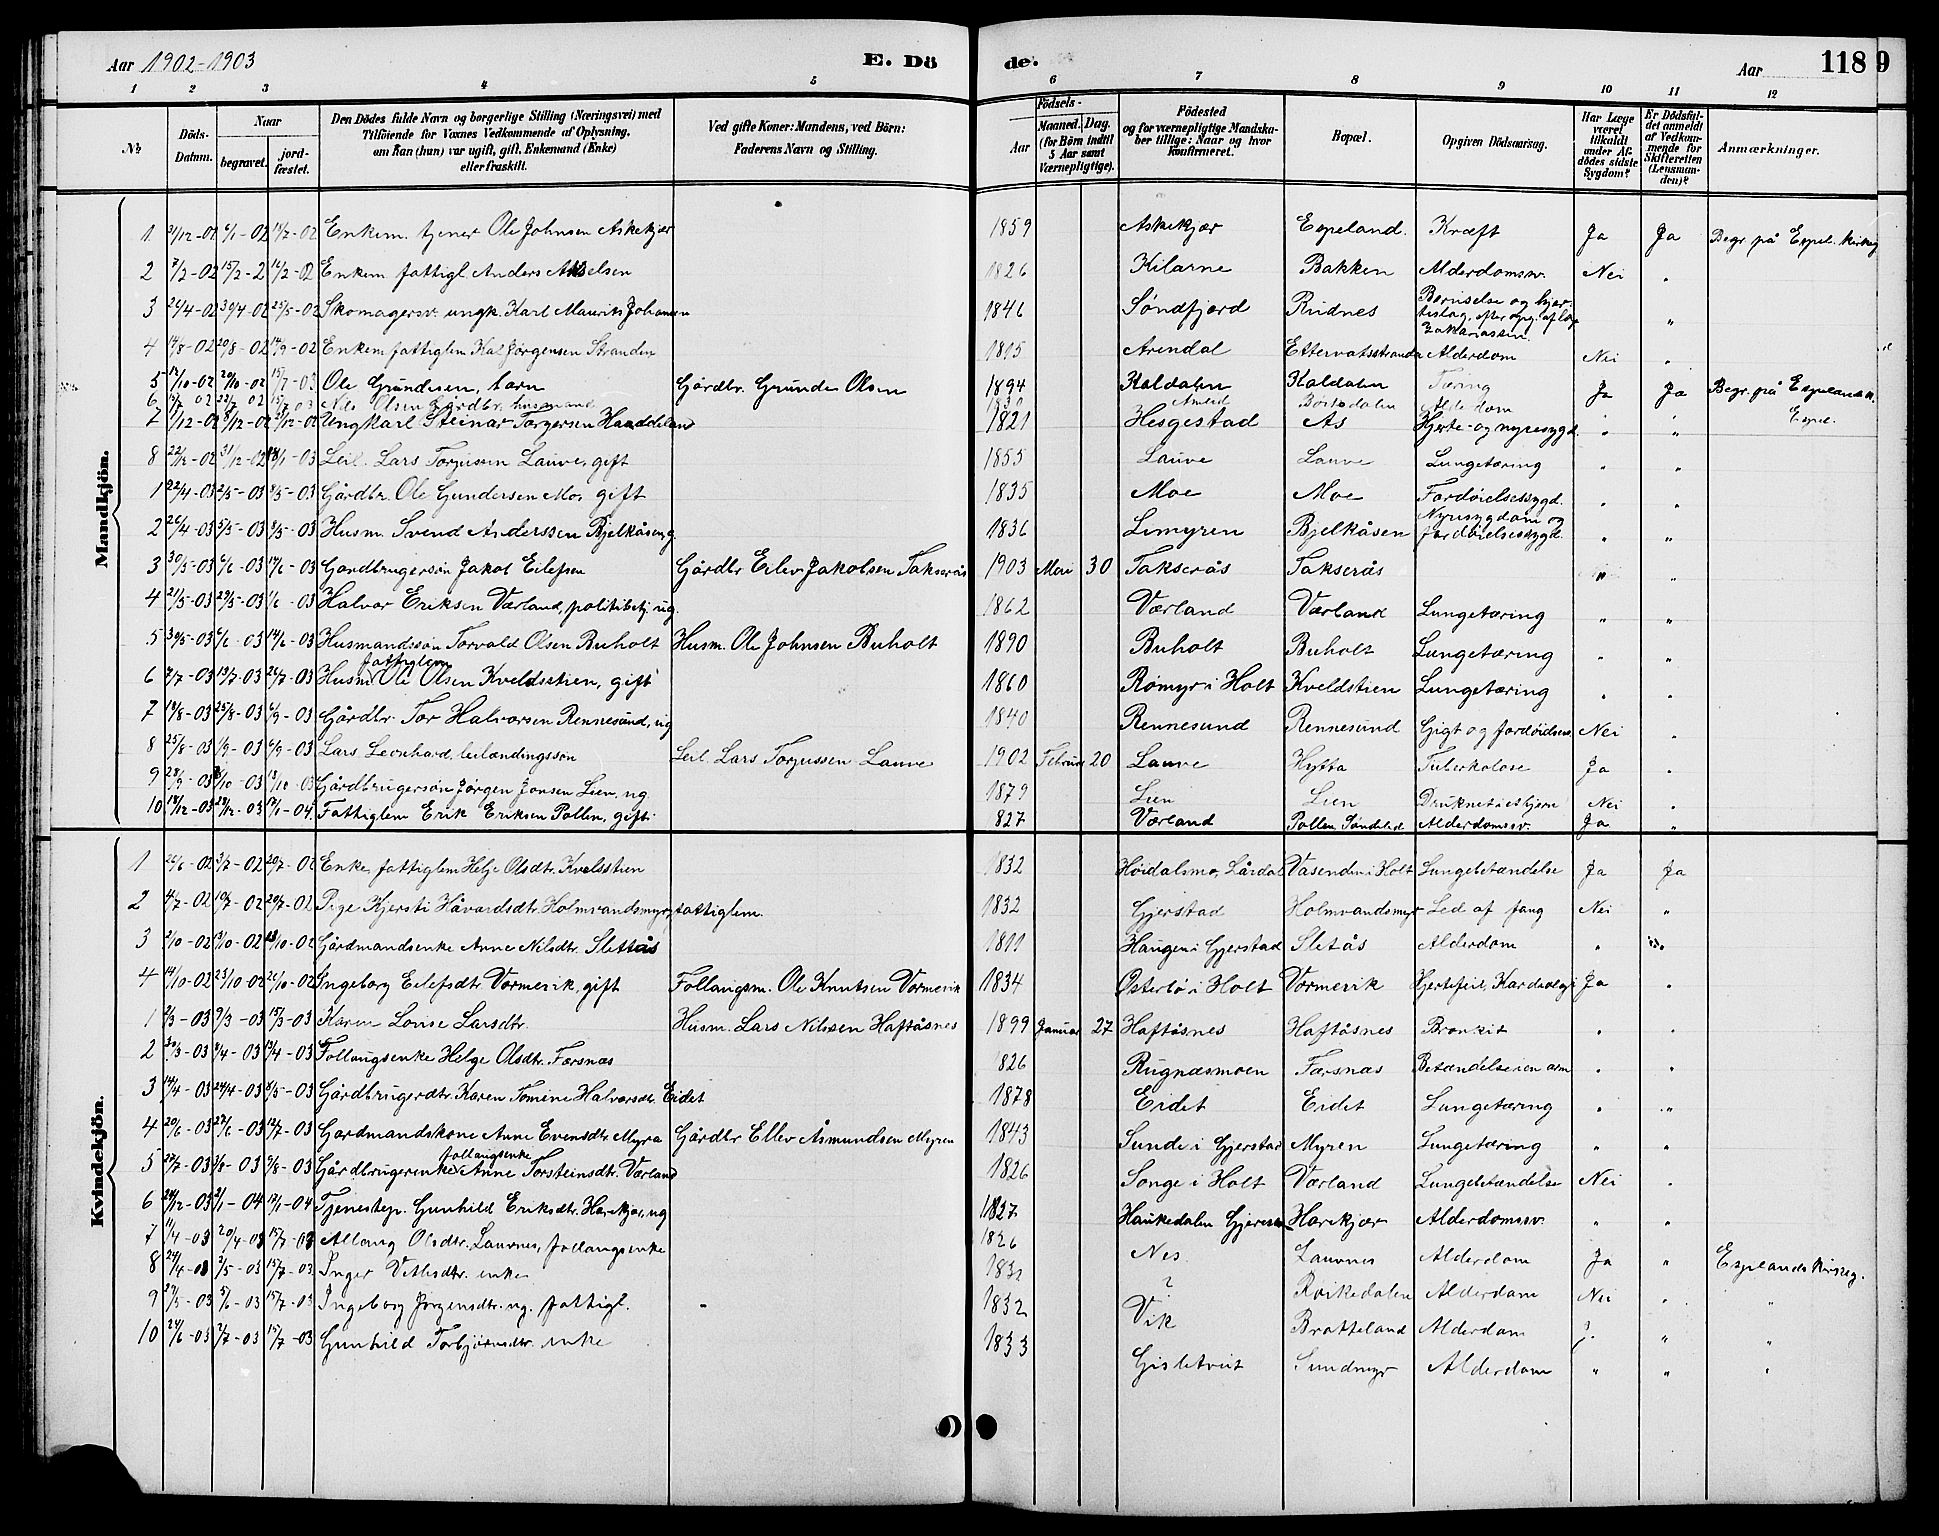 Aar 1902-1903 E. Dö de. Aar 118 9
1 2 3 4 5 6 7 8 9 10 11 12
No Döds-Datum. Naar begravet. jord-fæstet. Den Dödes fulde Navn og borgerlige Stilling (Næringsvei) med Tilföiende for Voxnes Vedkommende af Oplysning, om Han (hun) var ugift, gift, Enkemand (Enke) eller fraskilt. Ved gifte Koner: Mandens, ved Börn: Faderens Navn og Stilling. Födsels- Aar Maaned. Dag. (for Börn indtil 5 Aar samt Værnepligtige). Födested og for værnepligtige Mandska-ber tillige: Naar og hvor konfirmeret. Bopæl. Opgiven Dödsaarsag. Har Læge været tilkaldt under Af-dödes sidste Sygdom? Er Dödsfal-det anmeldt af Vedkom-mende for Skifteretten (Lensman-den)? Anmærkninger.
Mandkjön.
1 31/12-01 6/1-02 14/7-02 Enkem. tjener Ole Johnsen Askekjær 1859 Askekjær Espeland. Kræft Ja Ja Begr. på Espel. kirkeg
2 7/2-02 15/2-2 16/2-02 Enkem fattigl. Anders Akselsen 1826 Kilarne Bakken Alderdomssv. Nei "
3 26/4-02 30/4-02 25/5-02 Skomagersv. ungk. Karl Maurits Johansen 1846 Søndfjord Rudnes Beruselse og hjer-teslag, efter opg. af læge Zakariassen "
4 14/8-02 20/8-02 14/9-02 Enkem fattiglem Kal Jørgensen Stranden 1815 Arendal Ettervatsstranda Alderdom Nei "
5 12/10-02 20/10-02 15/7-03 Ole Gundersen, barn Gårdbr. Gunder Olsen 1894 Kaldalen Kaldalen Tæring Ja Ja Begr. på Espelands k.
6 02 22/7 02 15/7 03 Nils Olsen Gårdbr. husmand 1830 Amlid Alderdom
7 /12-02 8/12-02 21/12-02 Ungkarl Steinar Torgersen Haaddeland 1821 Hesgestad As Hjerte- og nyresygd. " " Espel.
8 22/12-02 31/12-02 18/1-03 Leil. Lars Torjussen Lauve, gift 1855 Lauve Lauve Lungetæring " "
1 22/4-03 2/5-03 8/5-03 Gårdbr. Ole Gundersen Mo, gift 1835 Moe Moe Fordøielsessygd. " "
2 26/4-03 5/5-03 8/5-03 Husm. Svend Anderssen Bjelkåsen g. 1836 Limyren Bjelkåsen Nyresygdom og fordøielsessygd. " "
3 30/5-03 6/6-03 17/6-03 Gardbrugersøn Jakob Eilefsen Gårdbr Eilev Jakobsen Takserås 1903 Mai 30 Takserås Takserås " "
4 21/5-03 29/5-03 1/6-03 Halvor Eriksen Værland, politibetj. ug. 1862 Værland Værland Lungetæring " "
5 30/5-03 6/6-03 14/6-03 Husmandssøn Torvald Olsen Buholt Husm. Ole Johnsen Buholt 1890 Buholt Buholt Lungetæring " "
fattiglem
6 7/7-03 13/7-03 26/7-03 Husm. Ole Olsen Kveldsstien, gift 1860 Rømyr i Holt Kveldstien Lungetæring " "
7 19/8-03 25/8-03 6/9-03 Gårdbr. Tor Halvorsen Rennesund, ug 1840 Rennesund Rennesund Gigt og fordøielses Nei "
8 25/8-03 1/9-03 6/9-03 Lars Leonhard, leilændingssøn Leil Lars Torjussen Lauve 1902 Februar 20 Lauve Hytta Tuberkolose Ja "
9 28/9-03 /10-03 18/10-03 Gårdbrugersøn Jørgen Jonsen Lien, ug 1879 Lien Lien Nei "
10 14/12-03 29/12-03 17/1-04 Fattiglem Erik Eriksen Pollen, gift. 827 Værland Pollen Søndeled Alderdomssv. Ja "
Kvindekjön.
1 26/6-02 3/7-02 20/7-02 Enke, fattiglem Helje Olsdtr. Kvelsstien 1832 Høidalsmo, Lårdal Vasenden i Holt Lungebetændelse Ja Ja
2 4/7-02 10/7-02 20/7-02 Pige Kjersti Håvardsdtr. Holmvandsmyr, fattiglem. 1832 Gjerstad Holmvandsmyr Led af fang Nei "
3 2/10-02 13/10-02 18/10-02 Gårdmandsenke Anne Nilsdtr. Slettås 1811 Haugen i Gjerstad Sletås Alderdom " "
4 14/10-02 23/10-02 26/10-02 Ingeborg Eilefsdtr Vormevik, gift Follaugsm. Ole Knutsen Vormevik 1834 Østerbø i Holt Vormevik Hjertefeil, Kardealgi Ja "
1 2/3-03 9/3-03 15/3-03 Karen Lovise Larsdtr. Husm. Lars Nilssen Haftåsnes 1899 Januar 27 Haftåsnes Haftåsnes Bronkit " "
2 30/3-03 8/4-03 13/4-03 Follaugsenke Helge Olsdtr. Færsnæs 826 Rugnæsmoen Færsnæs Betændelse i en arm " "
3 14/4-03 24/4-03 8/5-03 Gårdbrugerdtr. Karen Tomine Halvorsdtr. Eidet 1878 Eidet Eidet Lungetæring " "
4 20/6-03 27/6-03 12/7-03 Gardmandskone Anne Evensdtr Myra Gårdbr Ellev Åsmundsen Myren 1843 Sunde i Gjerstad Myren Lungetæring " "
follaugsenke
5 27/7-03 3/8-03 9/8-03 Gårdbrugerenke Anne Torsteinsdtr. Værland 1826 Songe i Holt Værland Lungebetændelse Nei "
6 24/12-03 2/1-04 17/1-04 Tjenestep. Gunhild Eriksdtr. Harekjær, ug 1827 Haukedalen Gjerstad Harekjær Alderdomssv. " "
7 11/4-03 20/4-03 15/7-03 Allaug Olsdtr. Lauvnes, follaugsenke 1826 Nes Lauvnes Alderdom Ja " Espelands kirkeg.
8 24/4-03 2/5-03 15/7-03 Inger Vetlesdtr. enke 1831 ? Røikedalen Alderdom Nei " "
9 27/5-03 5/6-03 15/7-03 Ingeborg Jørgensdtr. ug. fattigl. 1832 Vik Bratteland Alderdom ? " "
10 24/6-03 2/7-03 15/7-03 Gunhild Torbjørnsdtr. enke 1833 Gisletveit Sundmyr Alderdom " " "